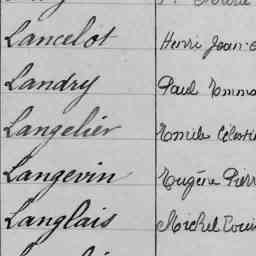 Lancelot Henri Jean
Landry Paul Emma
Langelier Emile Célesti
Langevin Eugène Pierr
Langlais Michel Loui